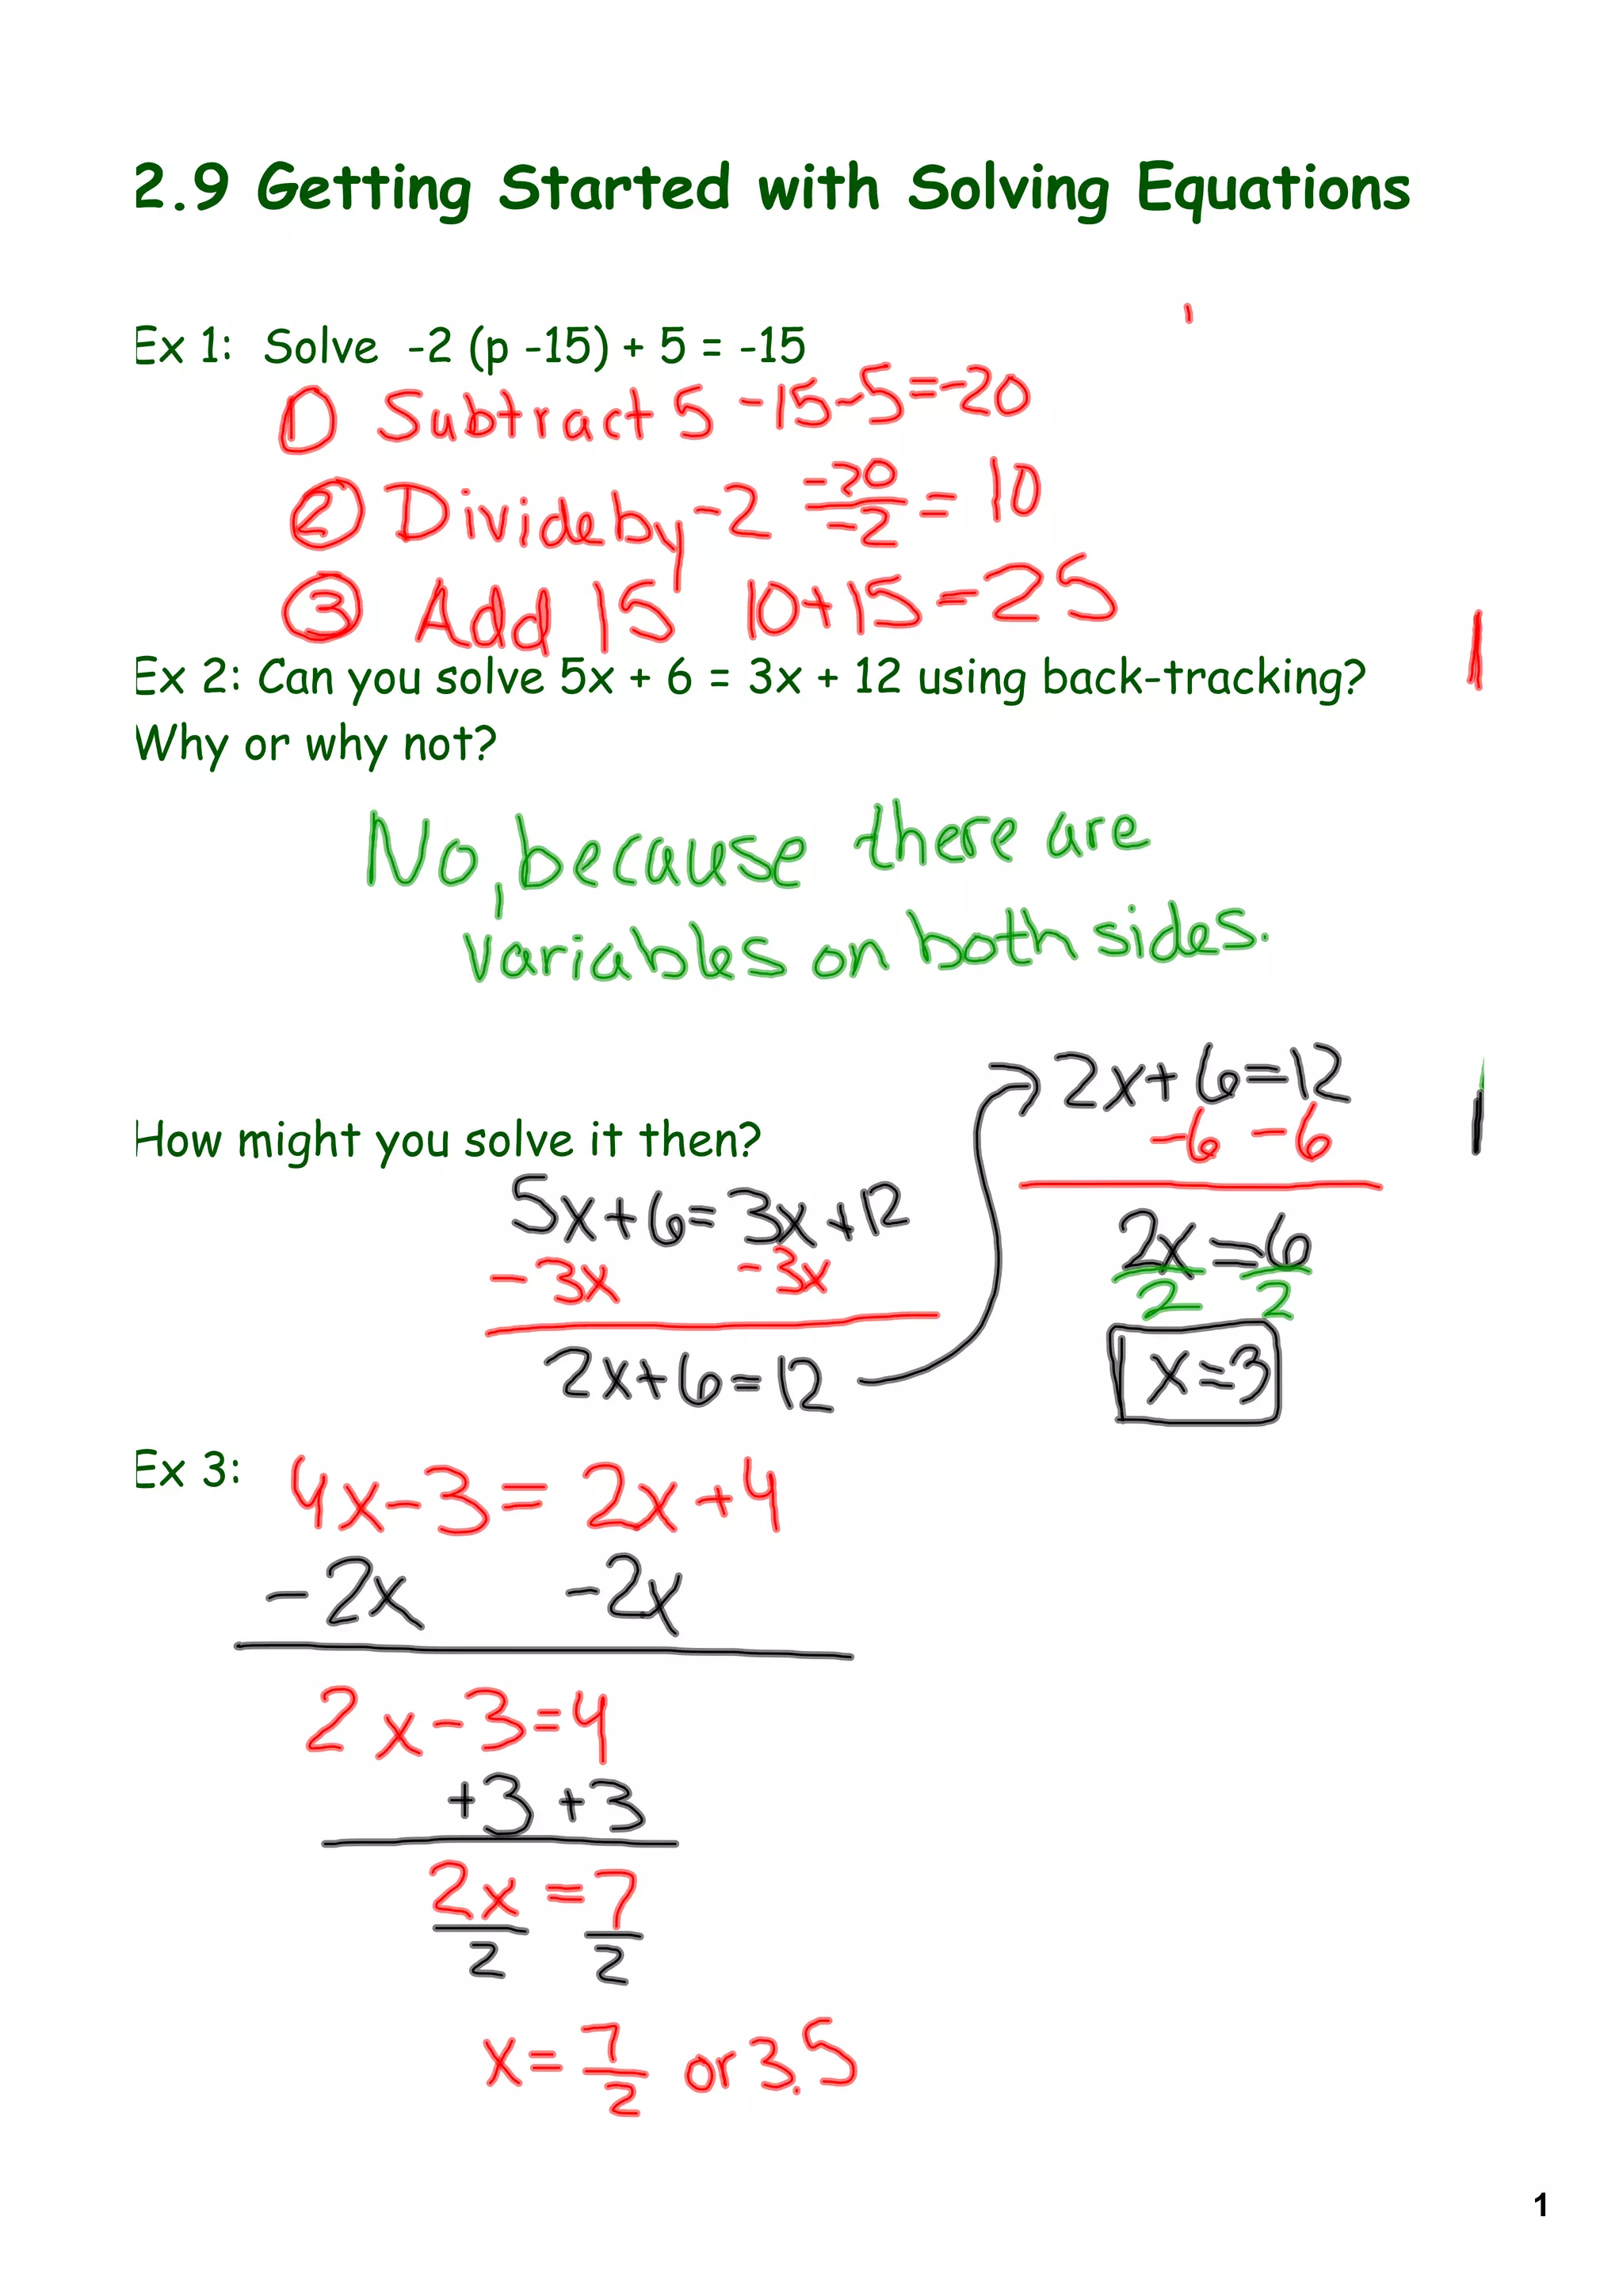 2.9 Getting Started with Solving Equations
Ex 1: Solve -2 (p -15) + 5 = -15
① Subtract 5 -15-5=-20
② Divide by -2 -20/-2 = 10
③ Add 15 10+15=25
Ex 2: Can you solve 5x + 6 = 3x + 12 using back-tracking?
Why or why not?
No, because there are
variables on both sides.
How might you solve it then?
5x+6=3x+12
-3x -3x
2x+6=12
2x+6=12
-6 -6
2x=6
2 2
x=3
Ex 3: 4x-3=2x+4
-2x -2x
2x-3=4
+3 +3
2x=7
2 2
x=7/2 or 3.5
1